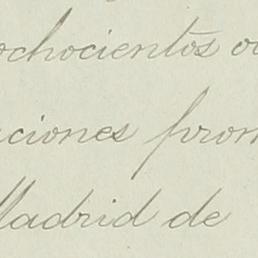 ochocientos o
ciones prom
Madrid de